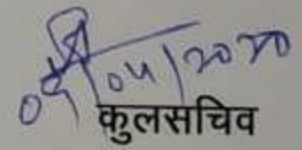 09/04/2020
कुलसचिव